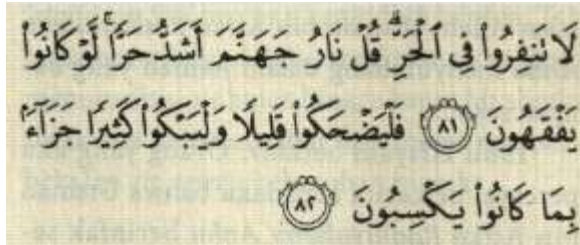 لَا تَنفِرُوا۟ فِى ٱلْحَرِّ ۗ قُلْ نَارُ جَهَنَّمَ أَشَدُّ حَرًّا ۚ لَّوْ كَانُوا۟
يَفْقَهُونَ ﴿٨١﴾ فَلْيَضْحَكُوا۟ قَلِيلًا وَلْيَبْكُوا۟ كَثِيرًا جَزَآءًۢ
بِمَا كَانُوا۟ يَكْسِبُونَ ﴿٨٢﴾